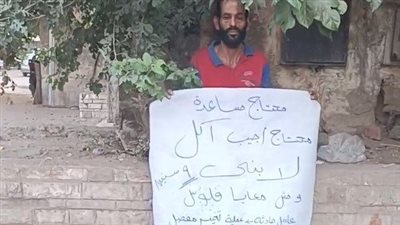 محتاج مساعدة
محتاج اجيب اكل
لا بنى ٩ سنين
و مش معايا فلوس
عامل حادثة و عملية تغيير مفصل